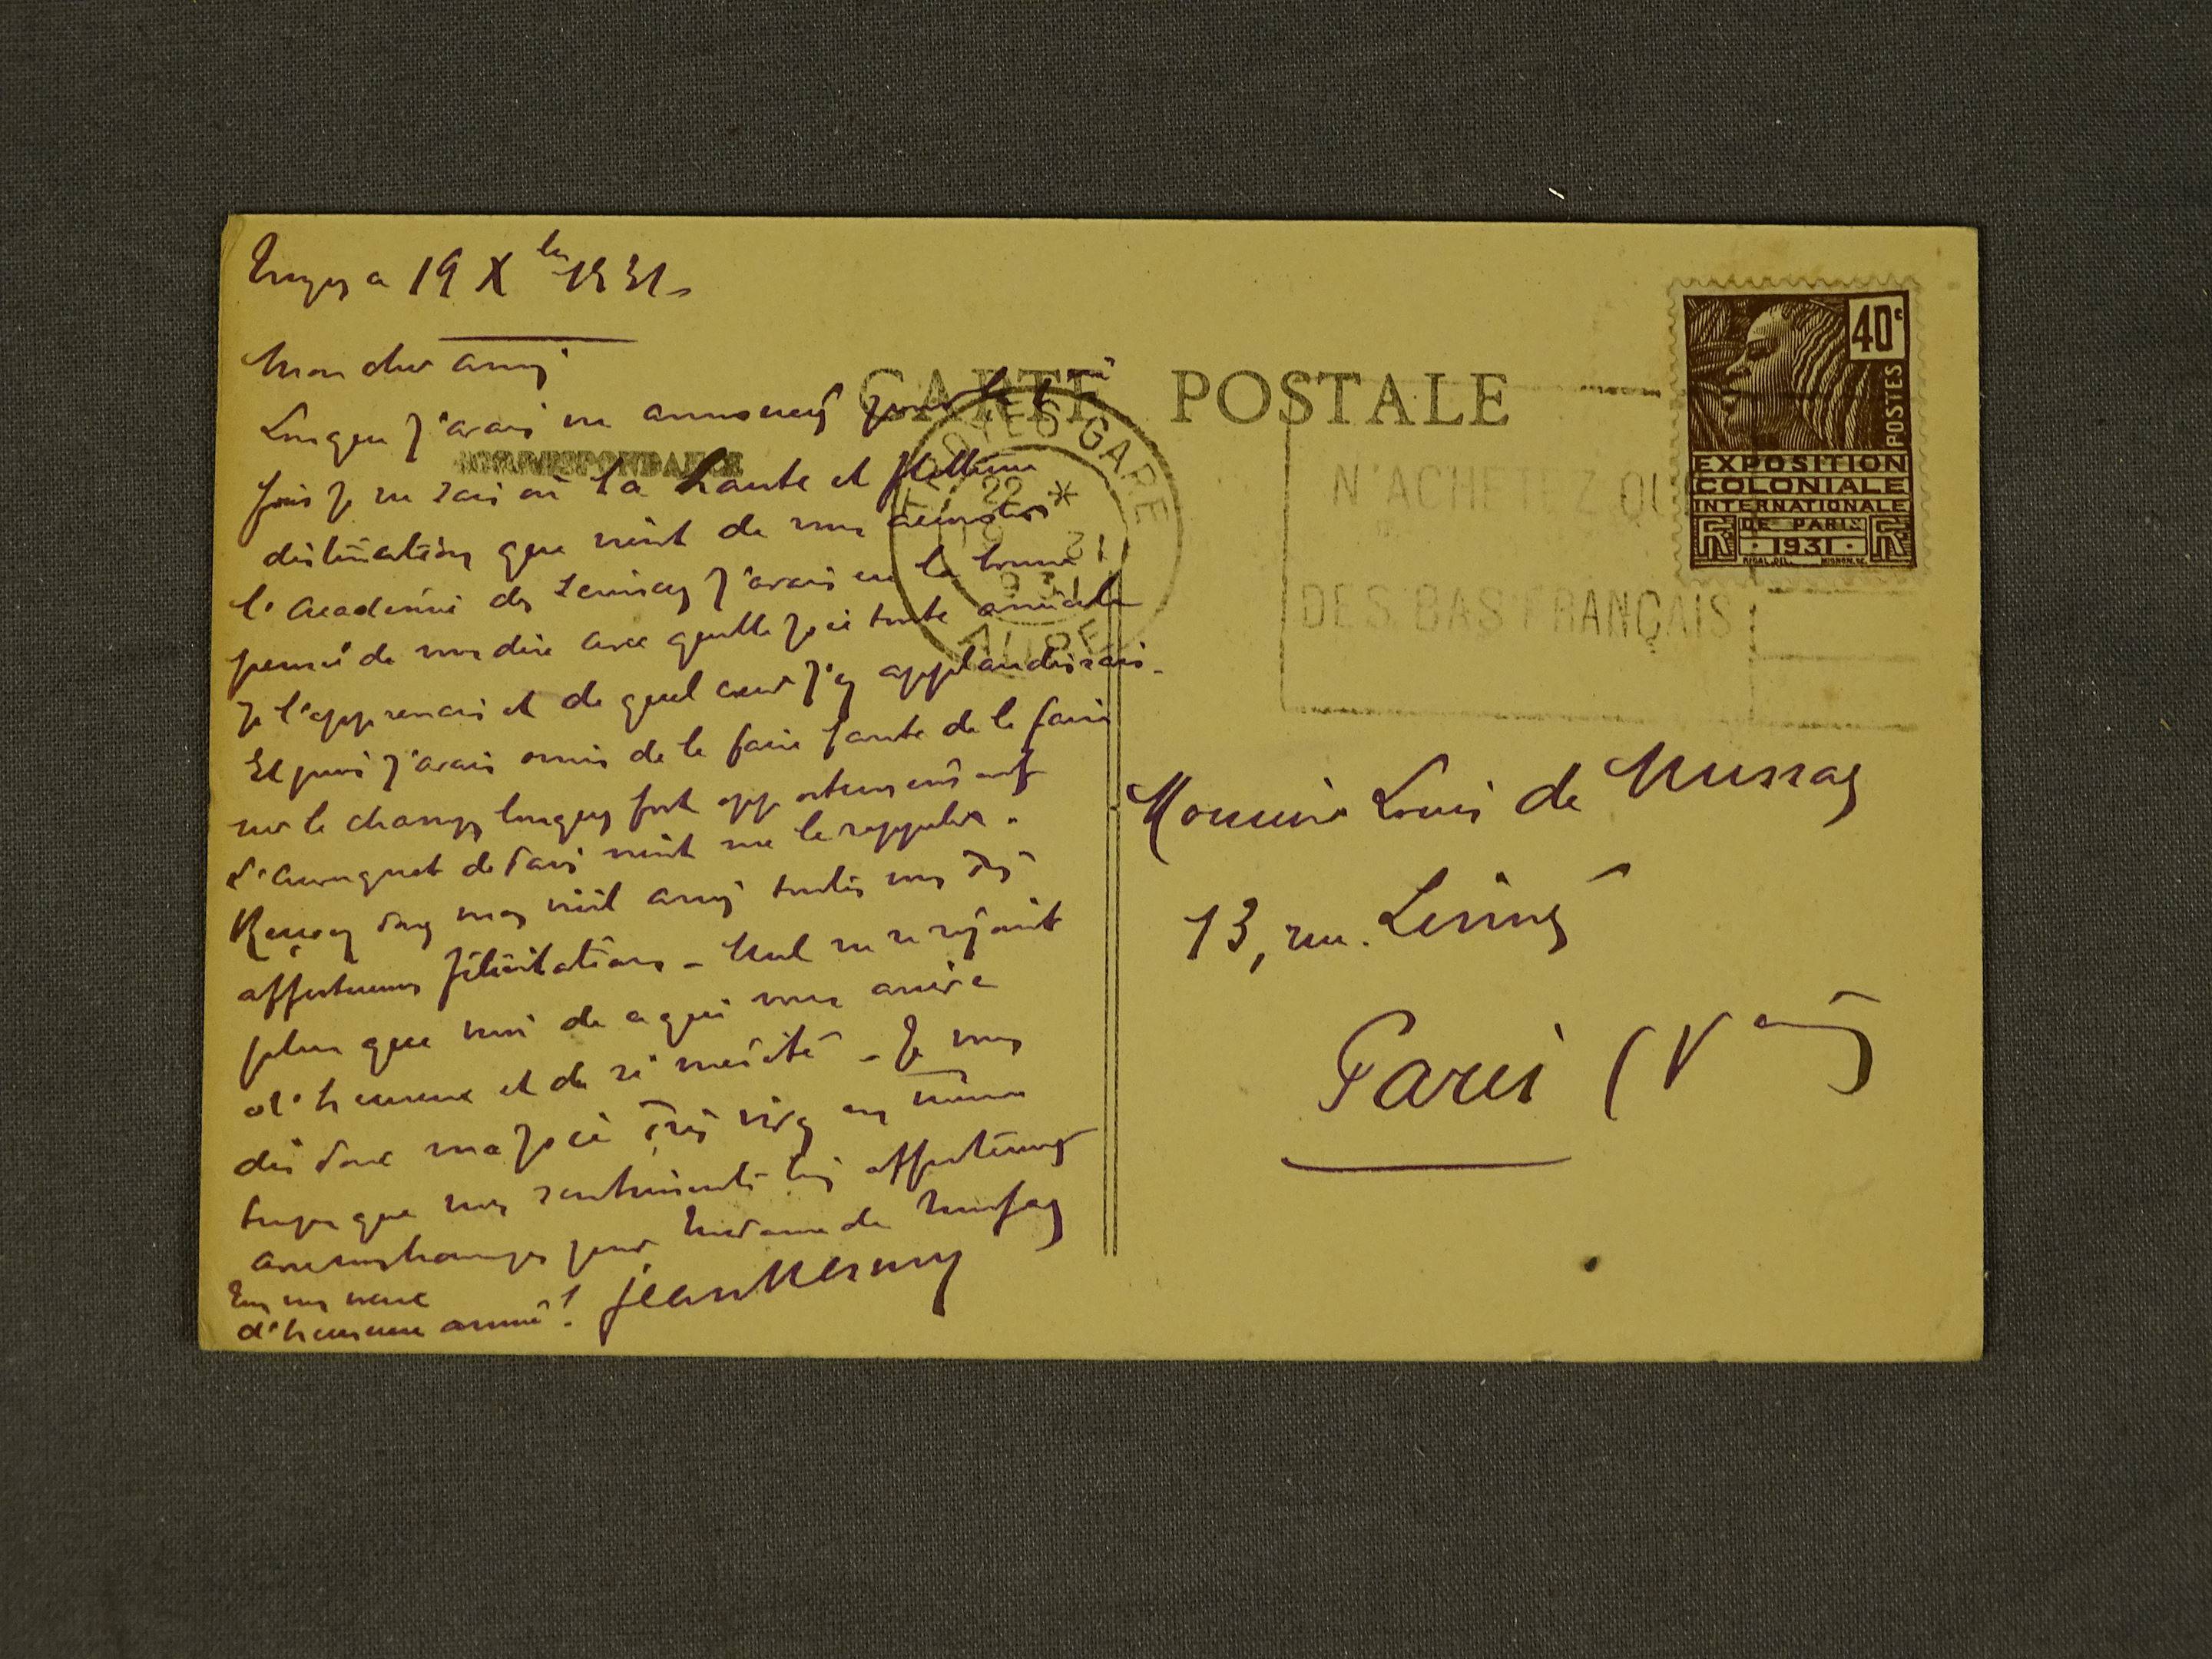 Troyes a 19 Xbre 1931
Mon cher ami
Lorsque j'avais vu annoncée pour la 1ère
fois je ne sais où la haute et flatteuse
distinction que vient de vous accorder
l'Academie des Sciences j'avais eu la bonne
pensée de vous dire avec quelle joie toute amicale
je l'apprenais et de quel cœur j'y applaudissais.
Et puis j'avais omis de le faire faute de le faire
sur le champ, lorsque fort opportunément
de Paris vient me le rappeler.
Recevez donc mon vieil ami toutes mes très
affectueuses félicitations - Nul ne se réjouit
plus que moi de ce qui vous arrive
d'heureux et de si mérité - Je vous
dis donc ma joie très vive en même
temps que mes sentiments très affectueux
avec mes hommages pour Madame de Mussac
Tous mes vœux
d'heureuse année! Jean Mesmy
CARTE POSTALE
CORRESPONDANCE
TROYES GARE
22 *
19 31
AUBE
N'ACHETEZ QUE
DES BAS FRANÇAIS
40c
POSTES
EXPOSITION
COLONIALE
INTERNATIONALE
DE PARIS
RF 1931 RF
Monsieur Louis de Mussac
13, rue Linné
Paris (Vème)